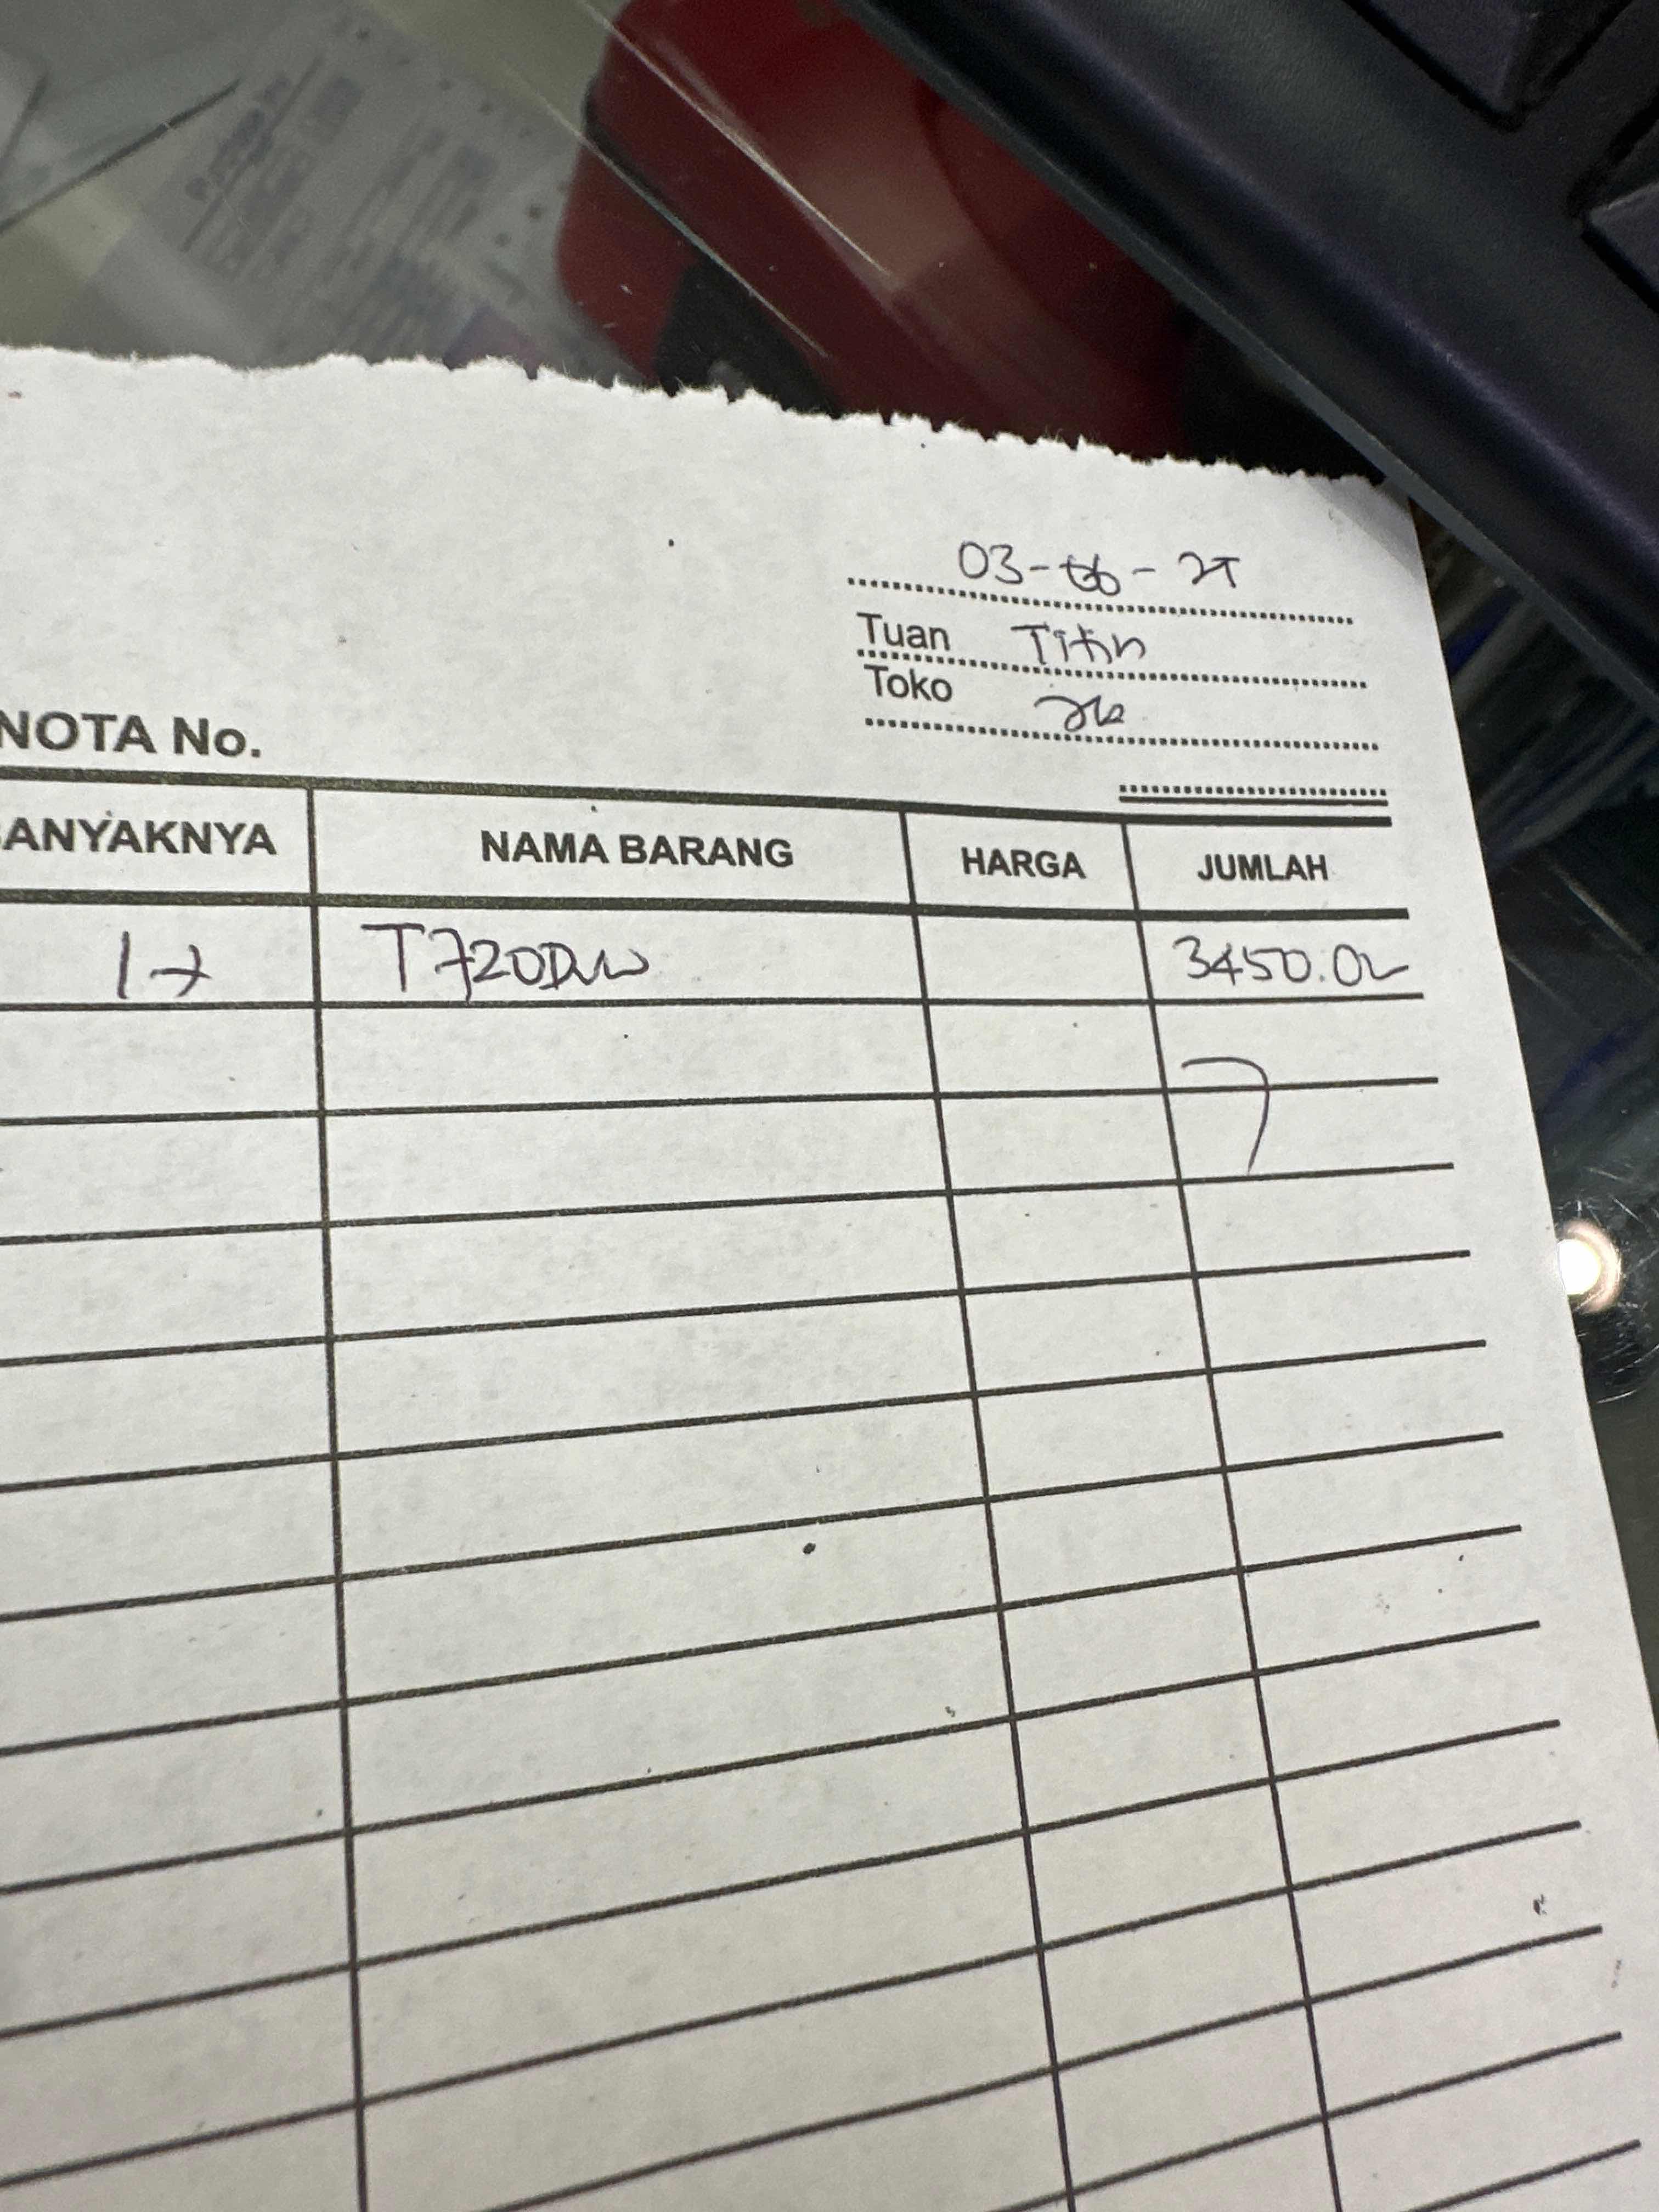 03-06-25
Tuan Titin
Toko
NOTA No.
BANYAKNYA NAMA BARANG HARGA JUMLAH
1 T720DW 3450.0